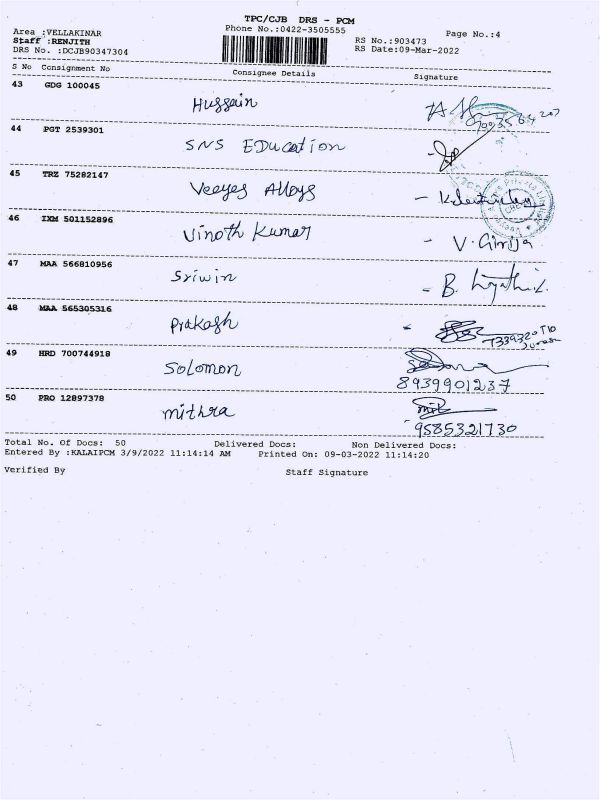 TPC/CJB DRS - PCM
Area :VELLAKINAR Phone No.:0422-3505555 Page No.:4
Staff :RENJITH RS No.:903473
DRS No. :DCJB90347304 RS Date:09-Mar-2022
S No Consignment No Consignee Details Signature
43 GDG 100045 Hussain
44 PGT 2539301 SNS EDucation
45 TRZ 75282147 Veeyes Alloys
46 IXM 501152896 Vinoth Kumar - V. Girija
47 MAA 566810956 Sriwin - B.
48 MAA 565305316 Prakash
49 HRD 700744918 Solomon
8939901237
50 PRO 12897378 mithra
- 9585321730
Total No. Of Docs: 50 Delivered Docs: Non Delivered Docs:
Entered By :KALAIPCM 3/9/2022 11:14:14 AM Printed On: 09-03-2022 11:14:20
Verified By Staff Signature